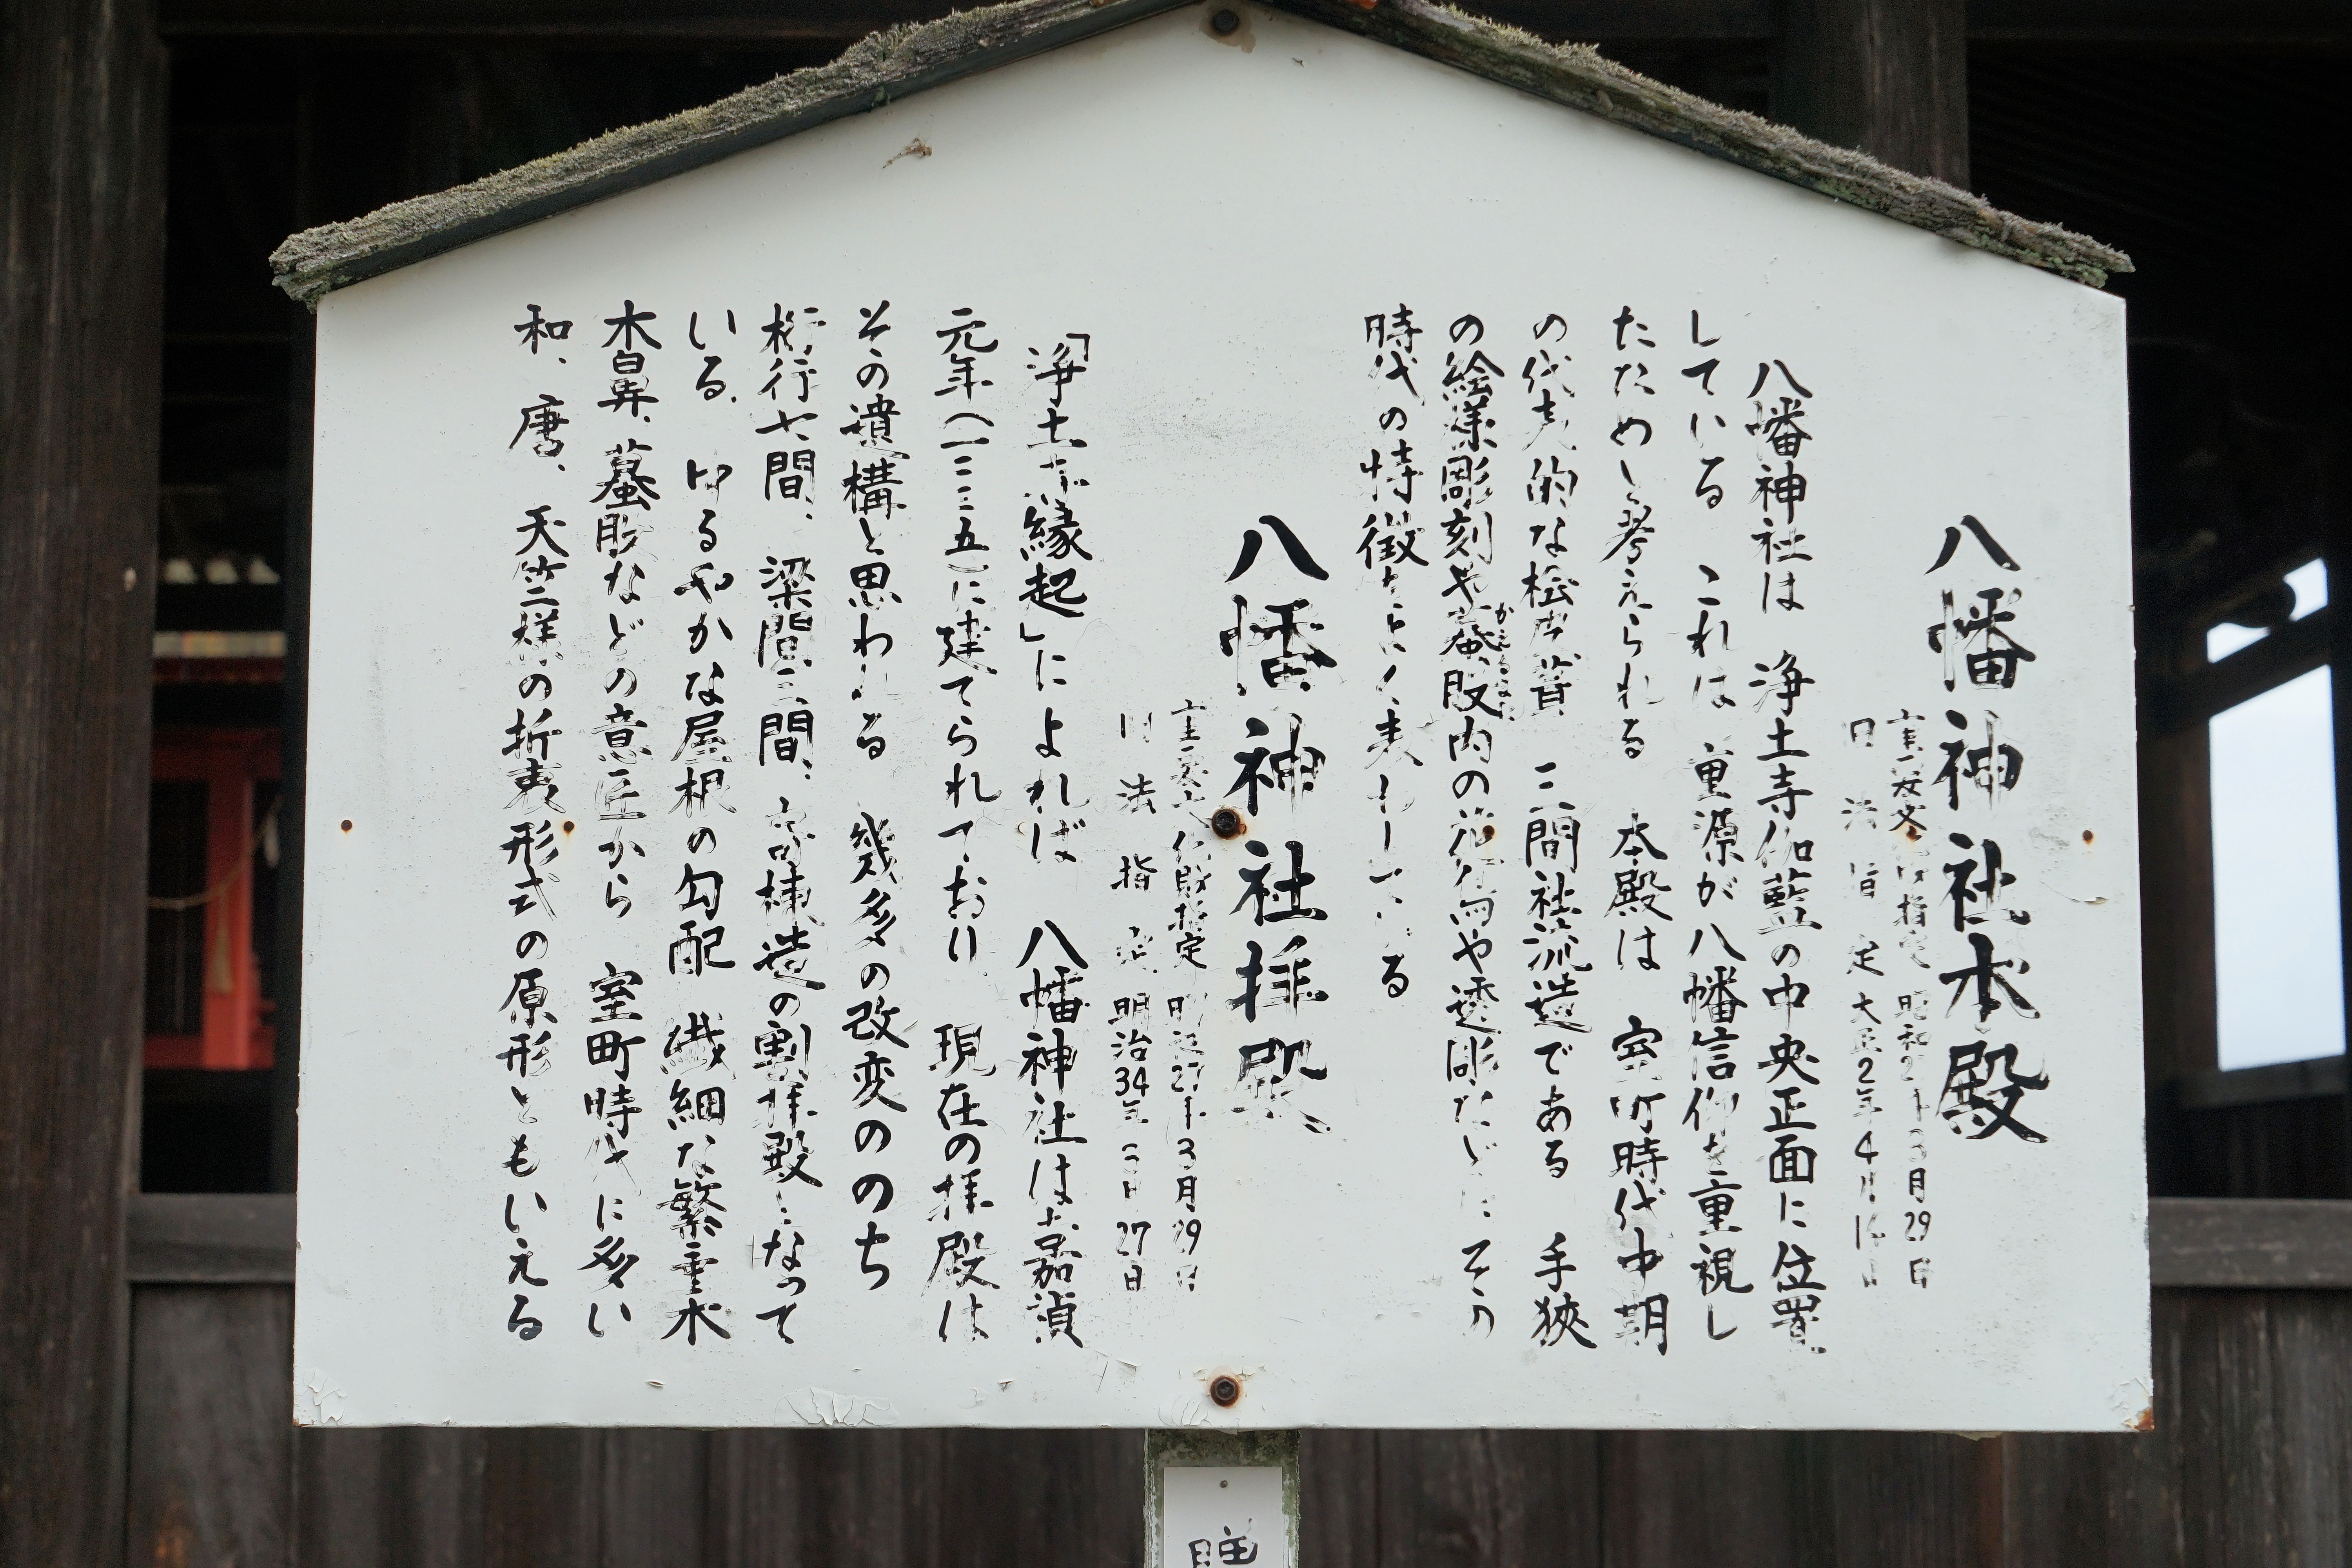 八幡神社本殿
重要文 指定 昭和2 3月29日
旧法指定 大正2年4月1 日
八幡神社は 浄土寺伽藍の中央正面に位置
している これは 重源が八幡信仰を重視し
たためと考えられる 本殿は 室町時代中期
の代表的な桧皮葺 三間社流造である 手狹
の絵様彫刻や蟇股内の 唐や透彫などにその
時代の特徴をよく表わしている
八幡神社拝殿
重要文 財指定 昭 27年3月29日
旧法指定 明治34年 27日
「浄土寺縁起」によれば 八幡神社は 嘉禎
元年(一二三五)に建てられており 現在の拝殿は
その遺構と思われる 幾多の改変ののち
桁行七間、梁間三間、寄棟造の割拝殿になって
いる、ゆるやかな屋根の勾配 繊細な繁垂木
木鼻、蟇股などの意匠から 室町時代に多い
和、唐、天竺三様の折衷形式の原形ともいえる
贈